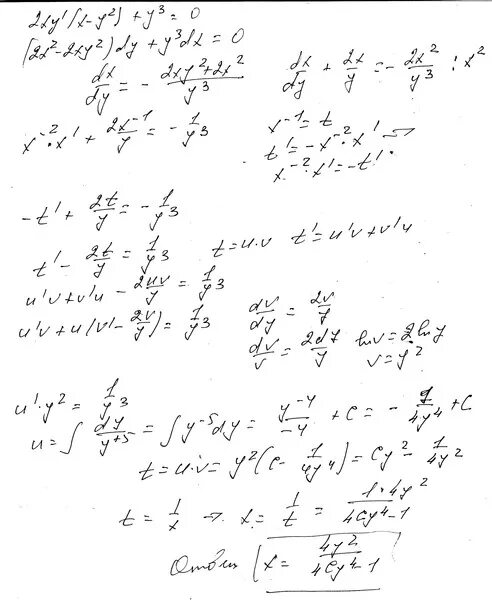 2xy'(x-y²)+y³=0
(2x²-2xy²)dy+y³dx=0
dx/dy = - (2xy²+2x²)/y³
dx/dy + 2x/y = - 2x²/y³ : x²
x⁻²·x' + 2x⁻¹/y = - 1/y³
x⁻¹=t
t'=-x⁻²·x' ⇒
x⁻²·x'=-t'
-t' + 2t/y = - 1/y³
t' - 2t/y = 1/y³ t=u·v t'=u'v+v'u
u'v+v'u - 2uv/y = 1/y³
u'v+u(v'- 2v/y) = 1/y³
dv/dy = 2v/y
dv/v = 2dy/y lnv=2lny
v=y²
u'·y² = 1/y³
u=∫ dy/y⁺⁵ = ∫y⁻⁵dy = y⁻⁴/-4 + C = - 1/4y⁴ + C
t=u·v = y²(C - 1/4y⁴) = Cy² - 1/4y²
t = 1/x → x = 1/t = 1·4y²/4Cy⁴-1
Ответ x = 4y²/4Cy⁴-1